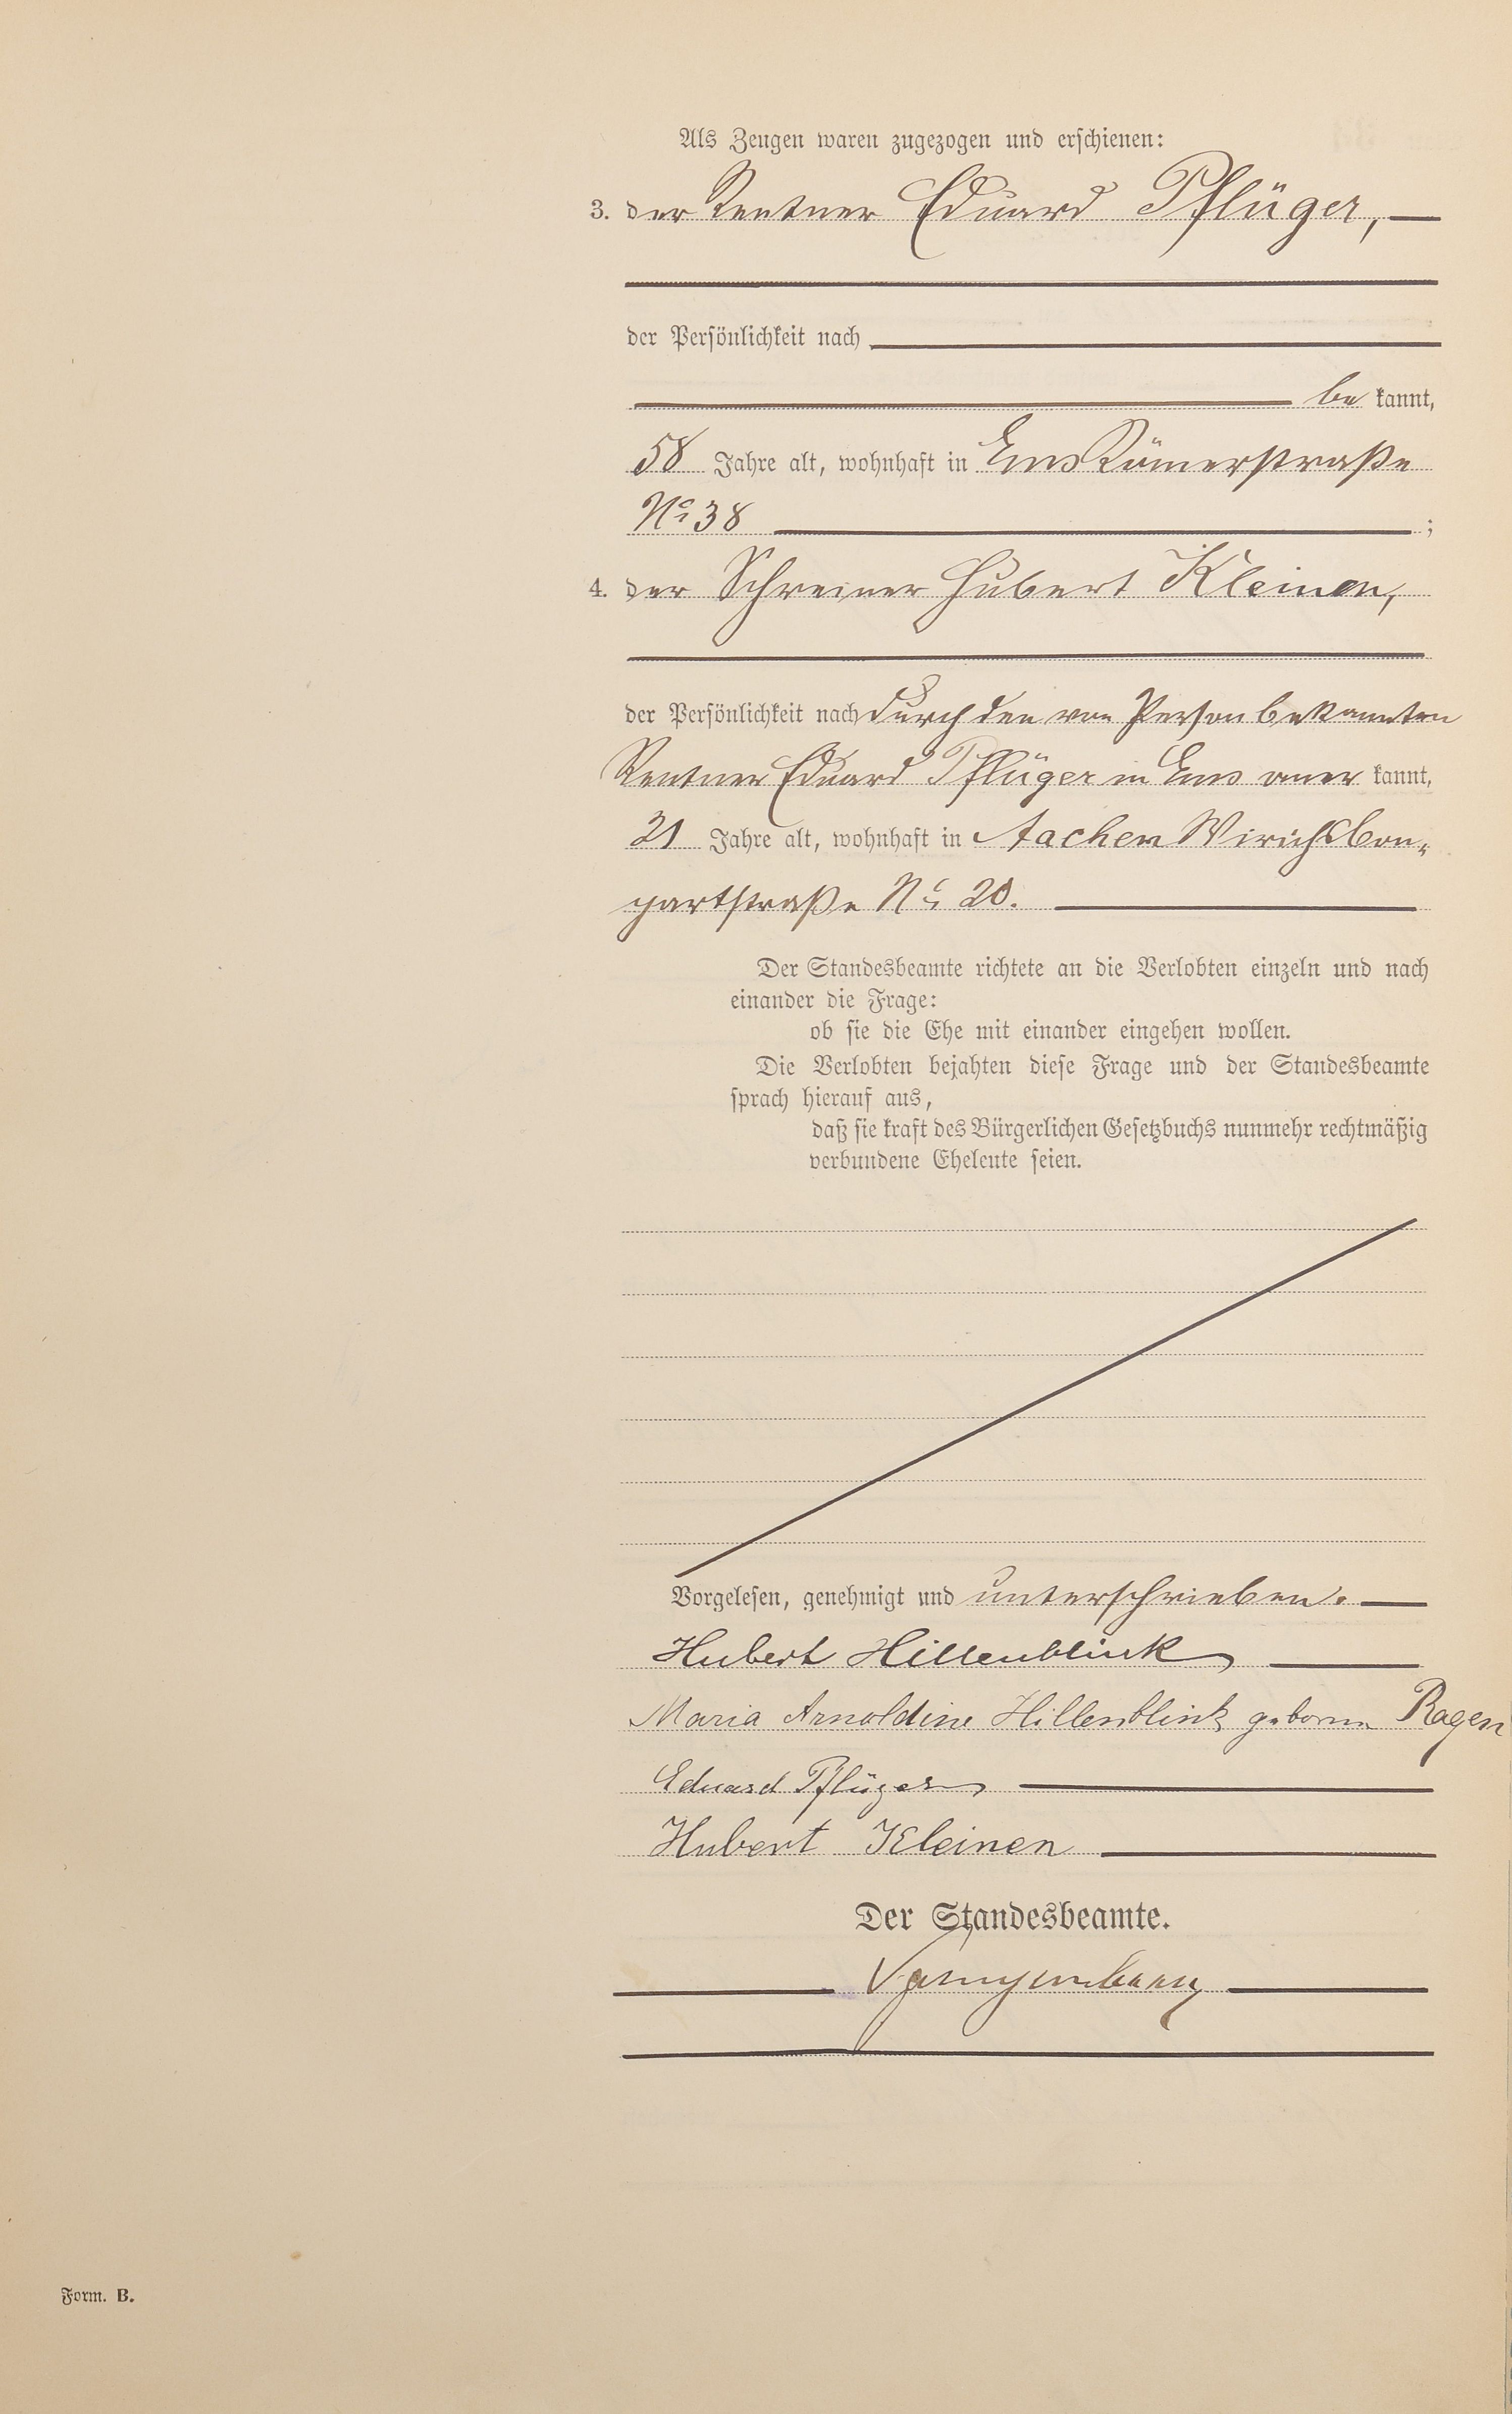 Als Zeugen waren zugezogen und erschienen:
3. der Rentner Eduard Pflüger,
der Persönlichkeit nach
be kannt,
58 Jahre alt, wohnhaft in Ems Römerstraße
No 38 ;
4. der Schreiner Hubert Kleinen,
der Persönlichkeit nach durch den von Person bekannten
Rentner Eduard Pflüger in Ems aner kannt,
21 Jahre alt, wohnhaft in Aachen Wirichsbon-
gartstraße No 20.
Der Standesbeamte richtete an die Verlobten einzeln und nach
einander die Frage:
ob sie die Ehe mit einander eingehen wollen.
Die Verlobten bejahten diese Frage und der Standesbeamte
sprach hierauf aus,
daß sie kraft des Bürgerlichen Gesetzbuchs nunmehr rechtmäßig
verbundene Eheleute seien.
Vorgelesen, genehmigt und unterschrieben.
Hubert Hillenblink
Maria Arnoldine Hillenblink geborne Ragen
Eduard Pflüger
Hubert Kleinen
Der Standesbeamte.
Form. B.